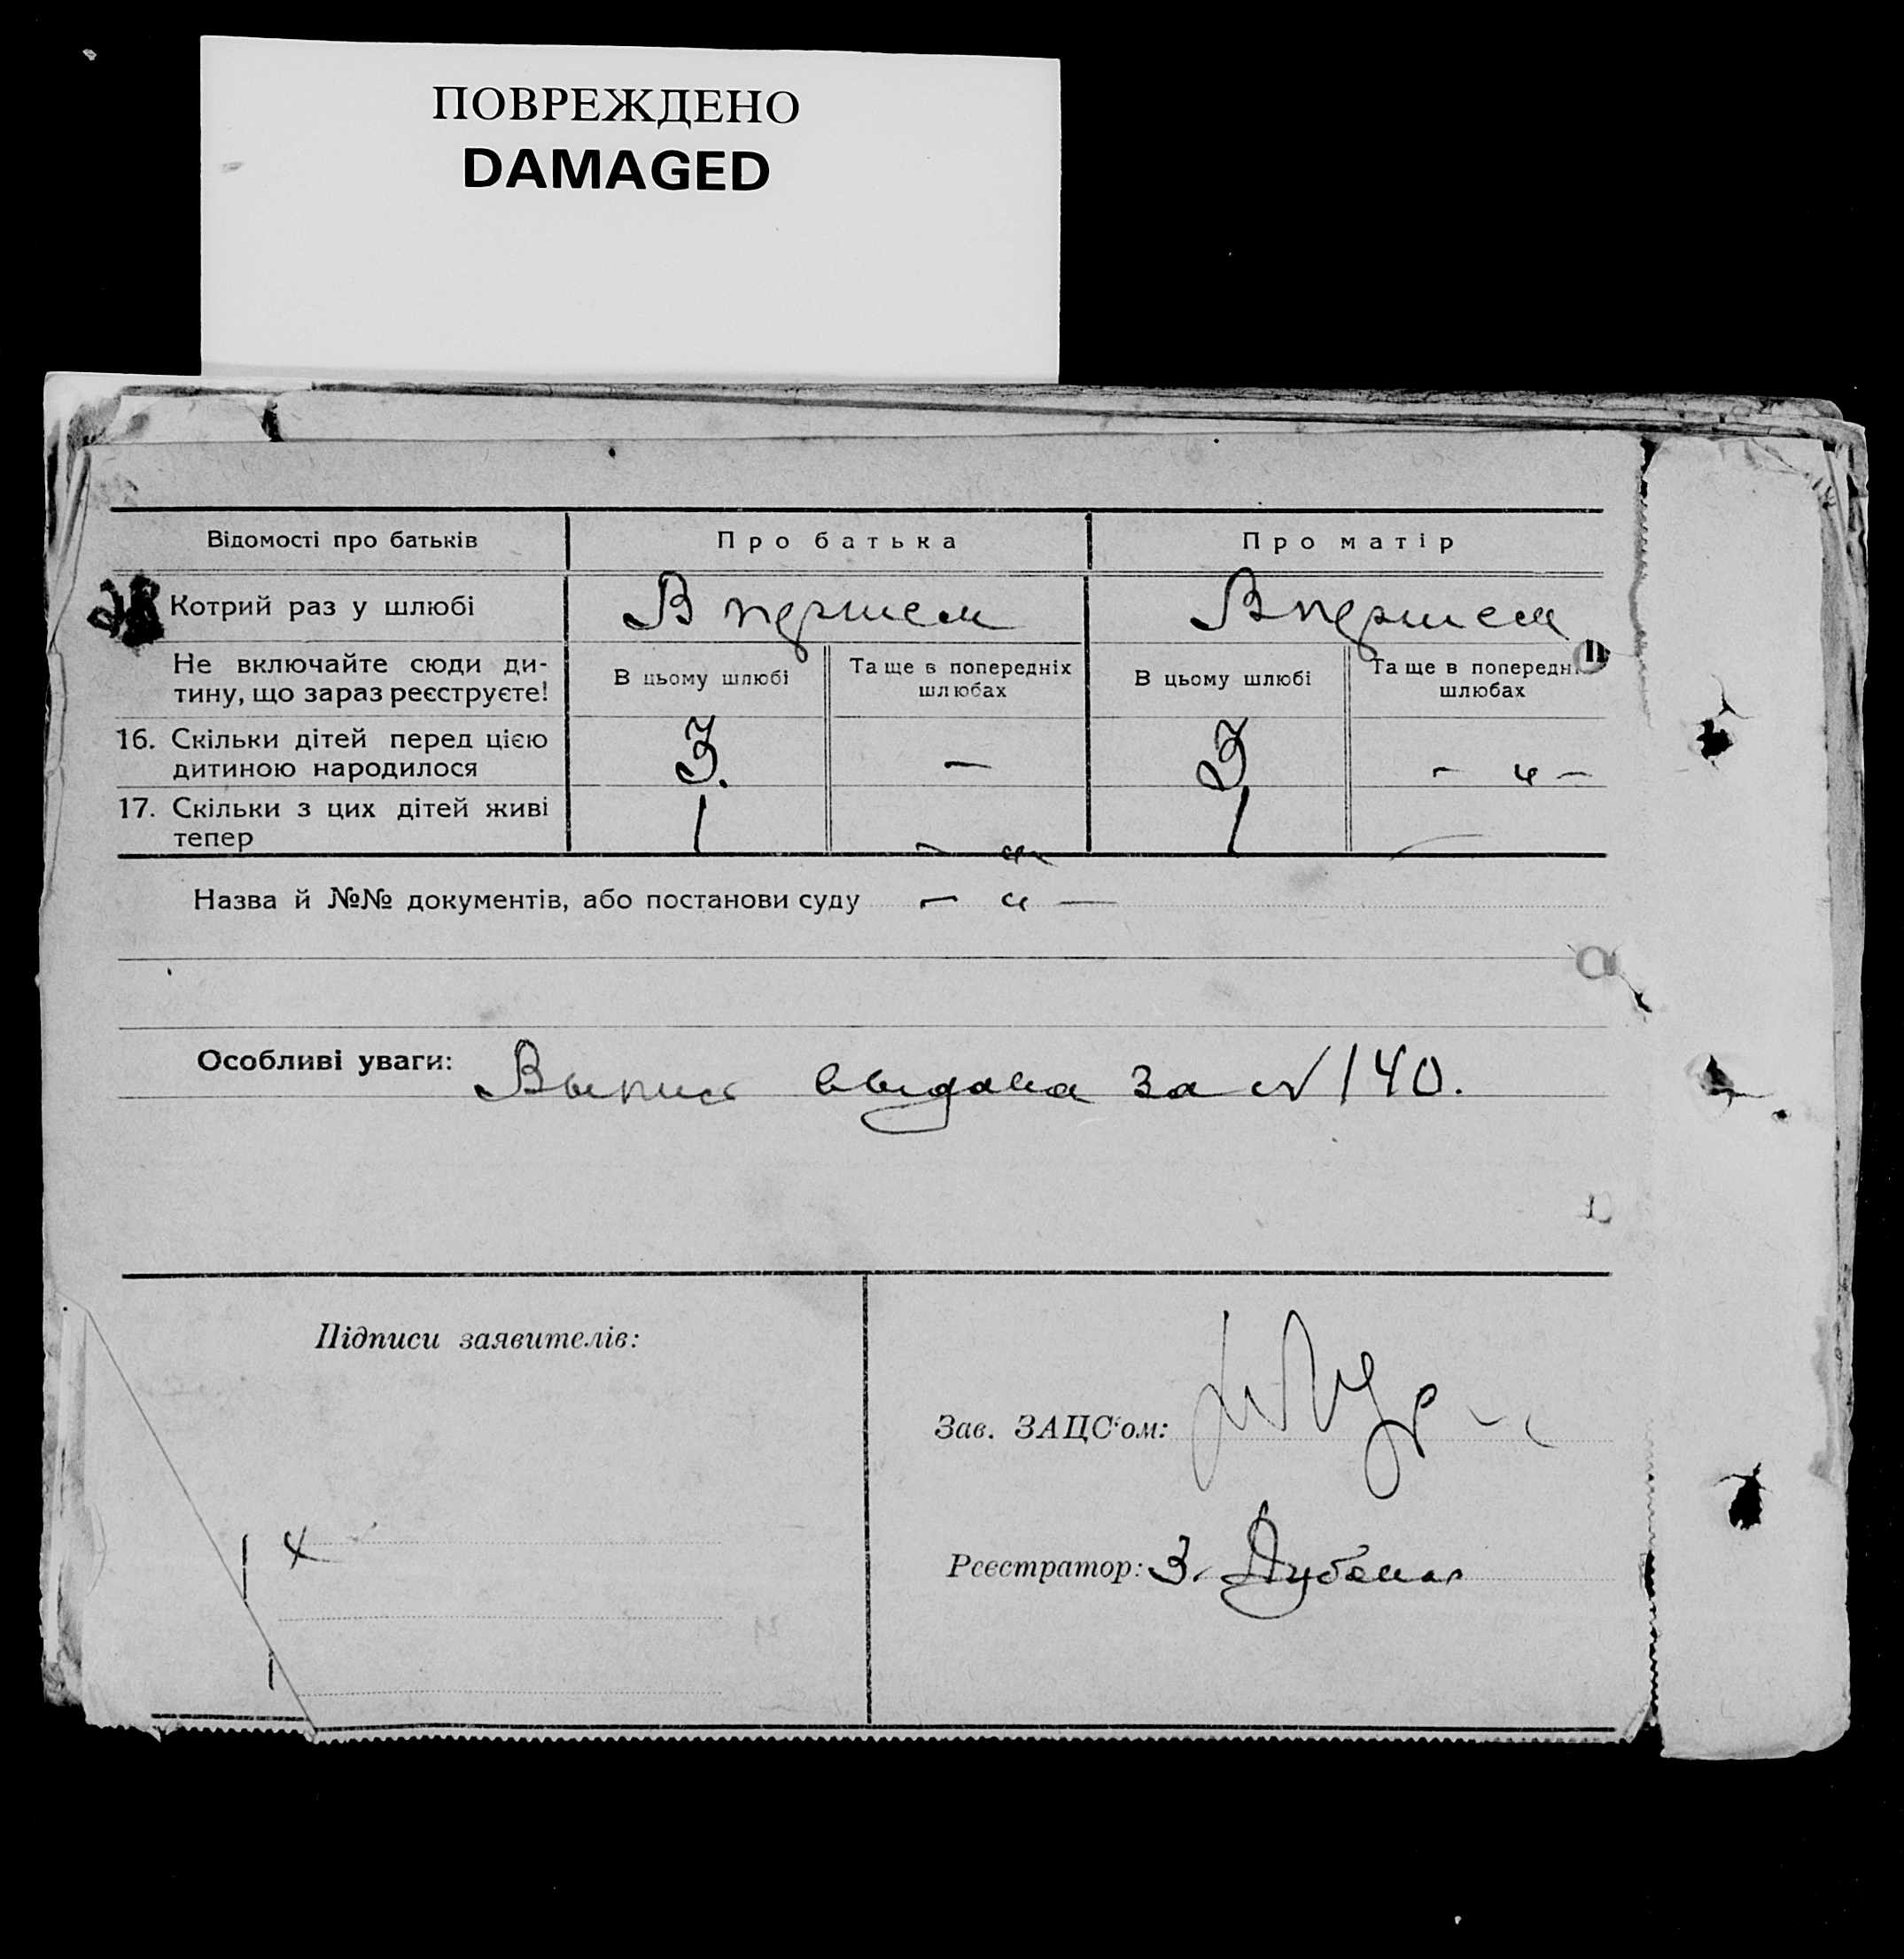 ПОВРЕЖДЕНО
DAMAGED
Відомості про батьків
Про батька
Про матір
Котрий раз у шлюбі
В першем
В першем
Не включайте сюди ди-
тину, що зараз реєструєте!
В цьому шлюбі
Та ще в попередніх
шлюбах
В цьому шлюбі
Та ще в попередні
шлюбах
16. Скільки дітей перед цією
дитиною народилося
3.
—
3
— „ —
17. Скільки з цих дітей живі
тепер
1
— „ —
1
—
Назва й №№ документів, або постанови суду — „ —
Особливі уваги: Выпись выдана за № 140.
Підписи заявителів:
Зав. ЗАЦС‘ом:
Реєстратор: З.